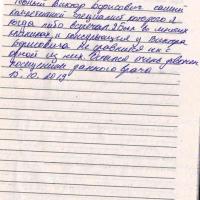 Виктор Борисович самый
компетентный специалист которого я
когда либо встречал. Был во многих
клиниках и консультации у Виктора
Борисовича не сравнится ни с
одной из них. Остался очень доволен
посещением данного врача
10.10.2019